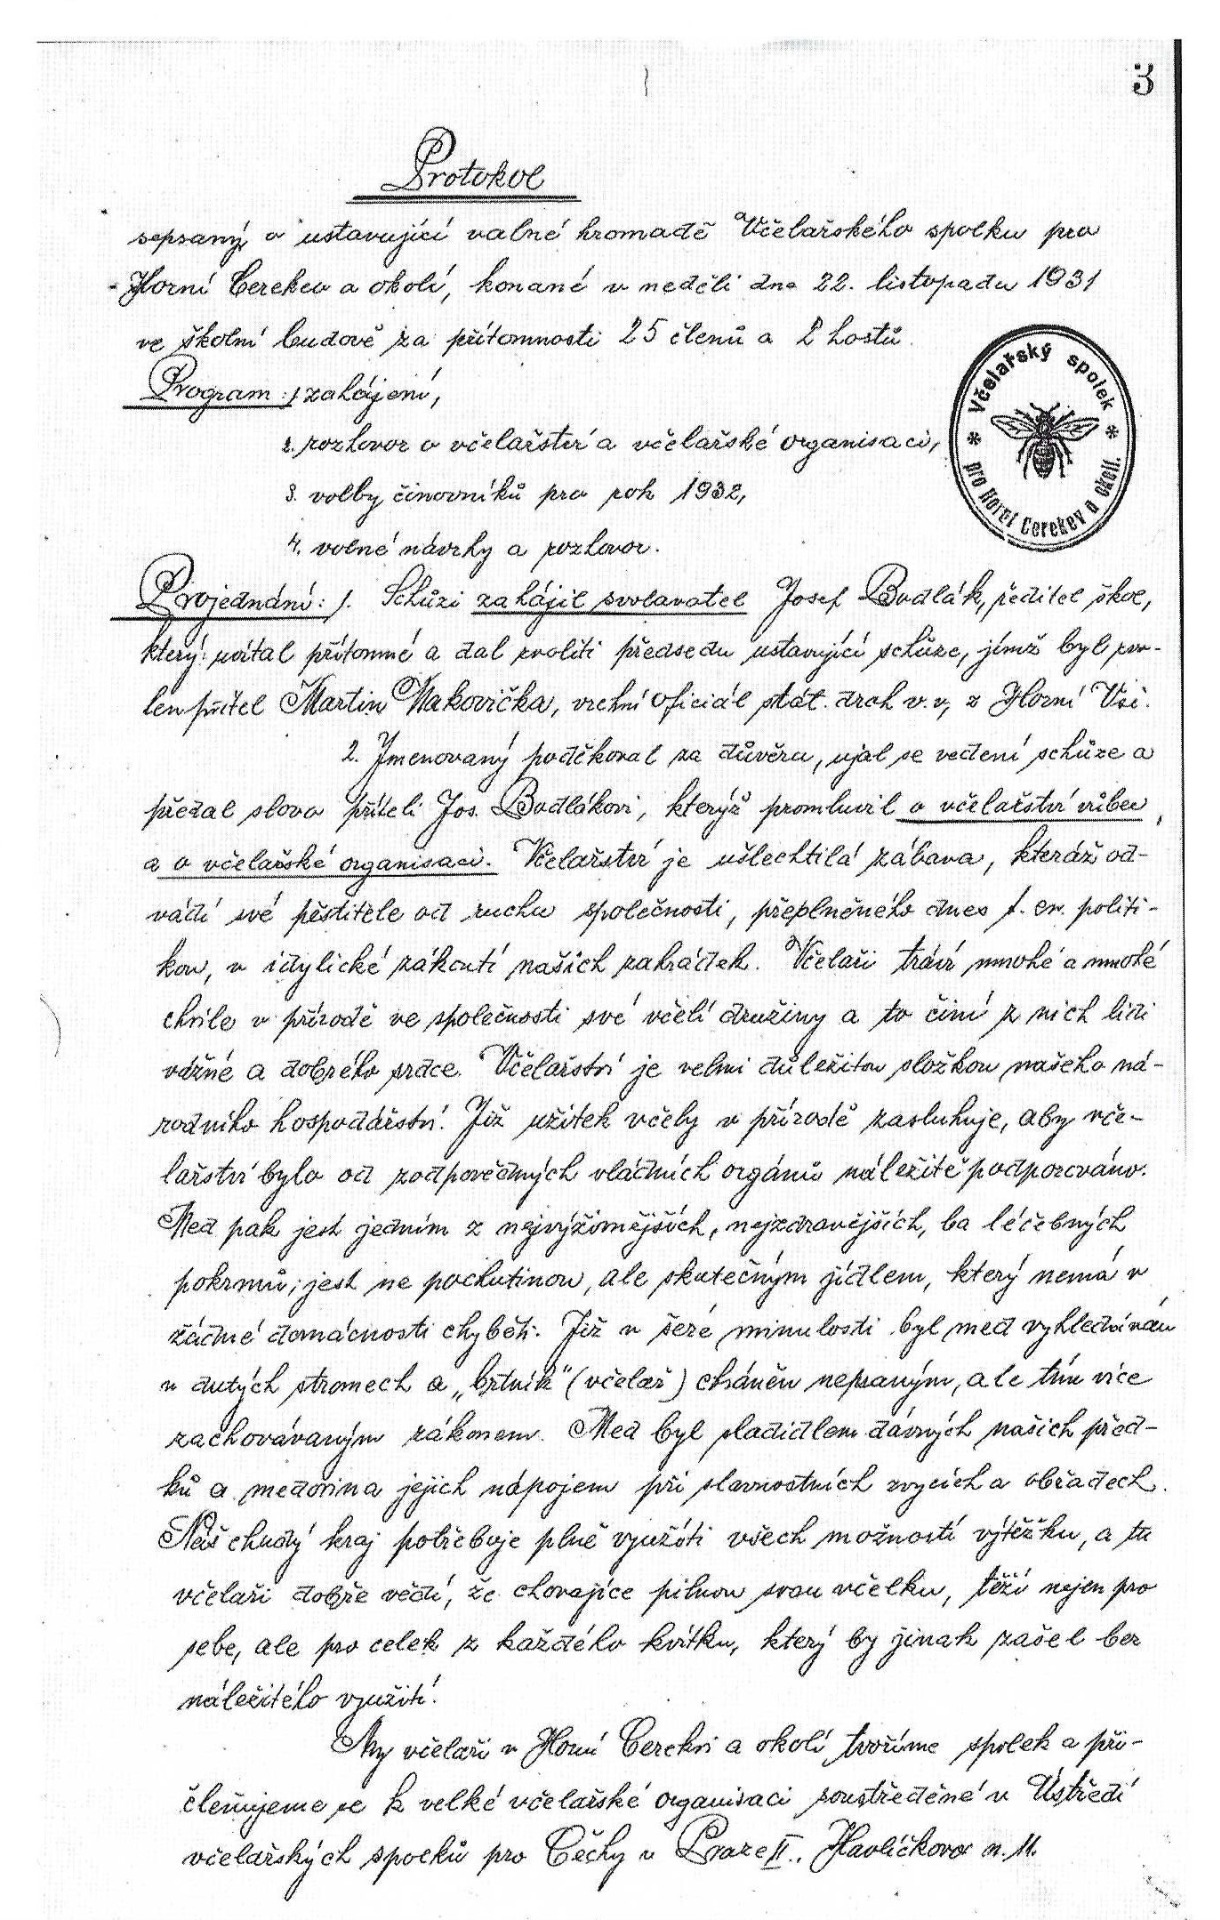 3
Protokol
sepsaný o ustavující valné hromadě Včelařského spolku pro
Horní Cerekev a okolí, konané v neděli dne 22. listopadu 1931
ve školní budově za přítomnosti 25 členů a 2 hostů.
Program: 1 zahájení,
2. rozhovor o včelařství a včelařské organisaci,
3. volby činovníků pro rok 1932,
4. volné návrhy a rozhovor.
Včelařský spolek
pro Horní Cerekev a okolí.
Projednání: 1. Schůzi zahájil svolavatel Josef Bodlák, ředitel škol,
který uvítal přítomné a dal zvoliti předsedu ustavující schůze, jímž byl zvo-
len přítel Martin Makovička, vrchní oficiál stát. drah v.v, z Horní Vsi.
2. Jmenovaný poděkoval za důvěru, ujal se vedení schůze a
předal slovo příteli Jos. Bodlákovi, kterýž promluvil o včelařství vůbec
a o včelařské organisaci. Včelařství je ušlechtilá zábava, kteráž od-
vádí své pěstitele od ruchu společnosti, přeplněného dnes politi-
kou, v idylické zákoutí našich zahrádek. Včelaři tráví mnohé a mnohé
chvíle v přírodě ve společnosti své včelí družiny a to činí z nich lidi
vážné a dobrého srdce. Včelařství je velmi důležitou složkou našeho ná-
rodního hospodářství. Již užitek včely v přírodě zasluhuje, aby vče-
lařství bylo od zodpovědných vládních orgánů náležitě podporováno.
Med pak jest jedním z nejvýživnějších, nejzdravějších, ba léčebných
pokrmů; jest ne pochutinou, ale skutečným jídlem, který nemá v
žádné domácnosti chyběti. Již v šeré minulosti byl med vyhledáván
v dutých stromech a „brtník" (včelař) chráněn nepsaným, ale tím více
zachovávaným zákonem. Med byl sladidlem dávných našich před-
ků a medovina jejich nápojem při slavnostních zvycích a obřadech.
Náš chudý kraj potřebuje plně využíti všech možností výtěžku, a tu
včelaři dobře vědí, že chovajíce pilnou svou včelku, těží nejen pro
sebe, ale pro celek z každého kvítku, který by jinak zašel bez
náležitého využití.
My včelaři v Horní Cerekvi a okolí tvoříme spolek a při-
čleňujeme se k velké včelařské organisaci soustředěné v Ústředí
včelařských spolků pro Čechy v Praze II., Havlíčkovo n. 11.